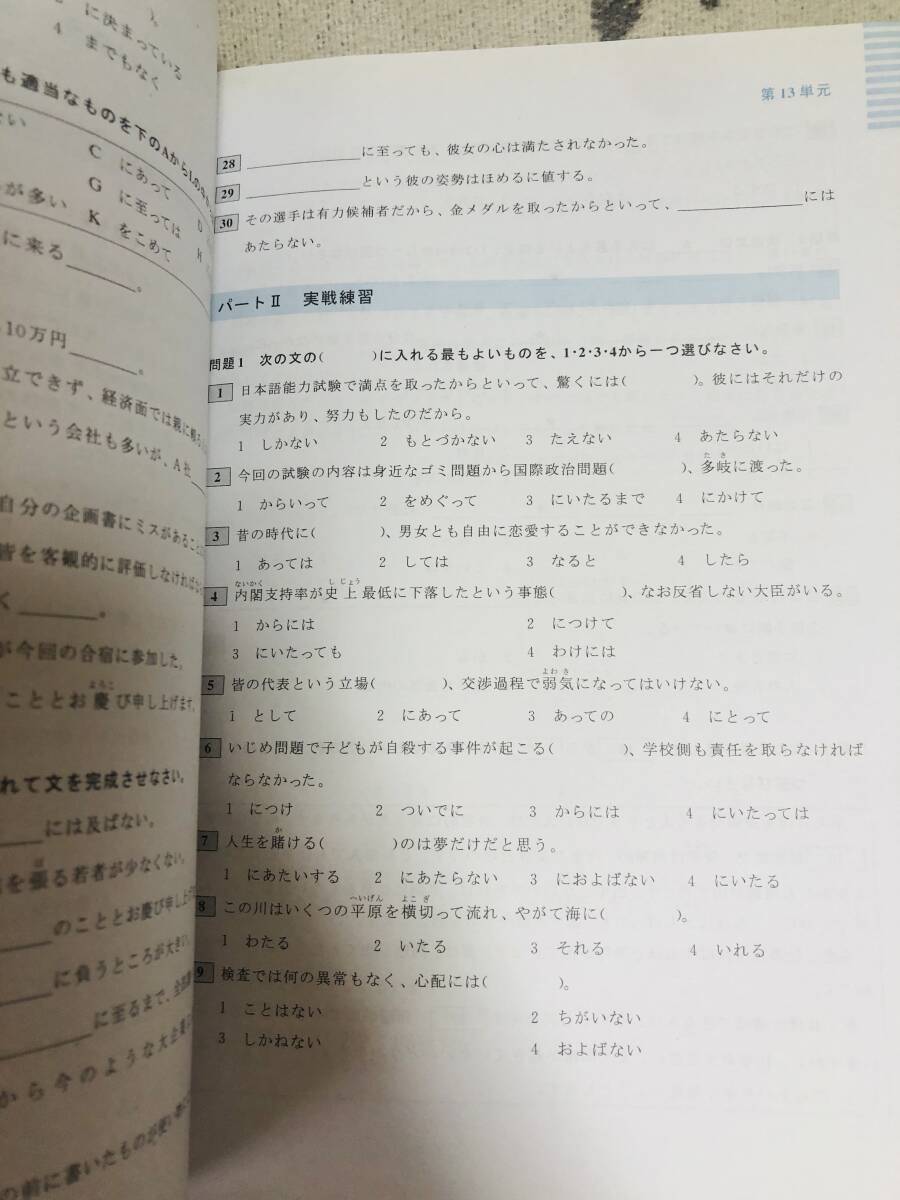 に決まっている
4 までもなく
も適当なものを下のAからLの中か
C にあって
G に至っては D
が多い K をこめて H
に来る______。
10万円______。
立できず、経済面では親に頼
という会社も多いが、A社__
自分の企画書にミスがあること
皆を客観的に評価しなければ
く______。
が今回の合宿に参加した。
こととお慶び申し上げます。
よろこ
れて文を完成させなさい。
____には及ばない。
を張る若者が少なくない。
____のこととお慶び申し上
____に負うところが大きい。
____に至るまで、全
から今のような大企業
の前に書いたものが
第13単元
28 ____________に至っても、彼女の心は満たされなかった。
29 ____________という彼の姿勢はほめるに値する。
30 その選手は有力候補者だから、金メダルを取ったからといって、____________には
あたらない。
パートⅡ 実戦練習
問題1 次の文の( )に入れる最もよいものを、1・2・3・4から一つ選びなさい。
1 日本語能力試験で満点を取ったからといって、驚くには( )。彼にはそれだけの
実力があり、努力もしたのだから。
1 しかない 2 もとづかない 3 たえない 4 あたらない
たき
2 今回の試験の内容は身近なゴミ問題から国際政治問題( )、多岐に渡った。
1 からいって 2 をめぐって 3 にいたるまで 4 にかけて
3 昔の時代に( )、男女とも自由に恋愛することができなかった。
1 あっては 2 しては 3 なると 4 したら
ないかく しじょう
4 内閣支持率が史上最低に下落したという事態( )、なお反省しない大臣がいる。
1 からには 2 につけて
3 にいたっても 4 わけには
よわき
5 皆の代表という立場( )、交渉過程で弱気になってはいけない。
1 として 2 にあって 3 あっての 4 にとって
6 いじめ問題で子どもが自殺する事件が起こる( )、学校側も責任を取らなければ
ならなかった。
1 につけ 2 ついでに 3 からには 4 にいたっては
か
7 人生を賭ける( )のは夢だけだと思う。
1 にあたいする 2 にあたらない 3 におよばない 4 にいたる
へいげん よこぎ
8 この川はいくつの平原を横切って流れ、やがて海に( )。
1 わたる 2 いたる 3 それる 4 いれる
9 検査では何の異常もなく、心配には( )。
1 ことはない 2 ちがいない
3 しかねない 4 およばない